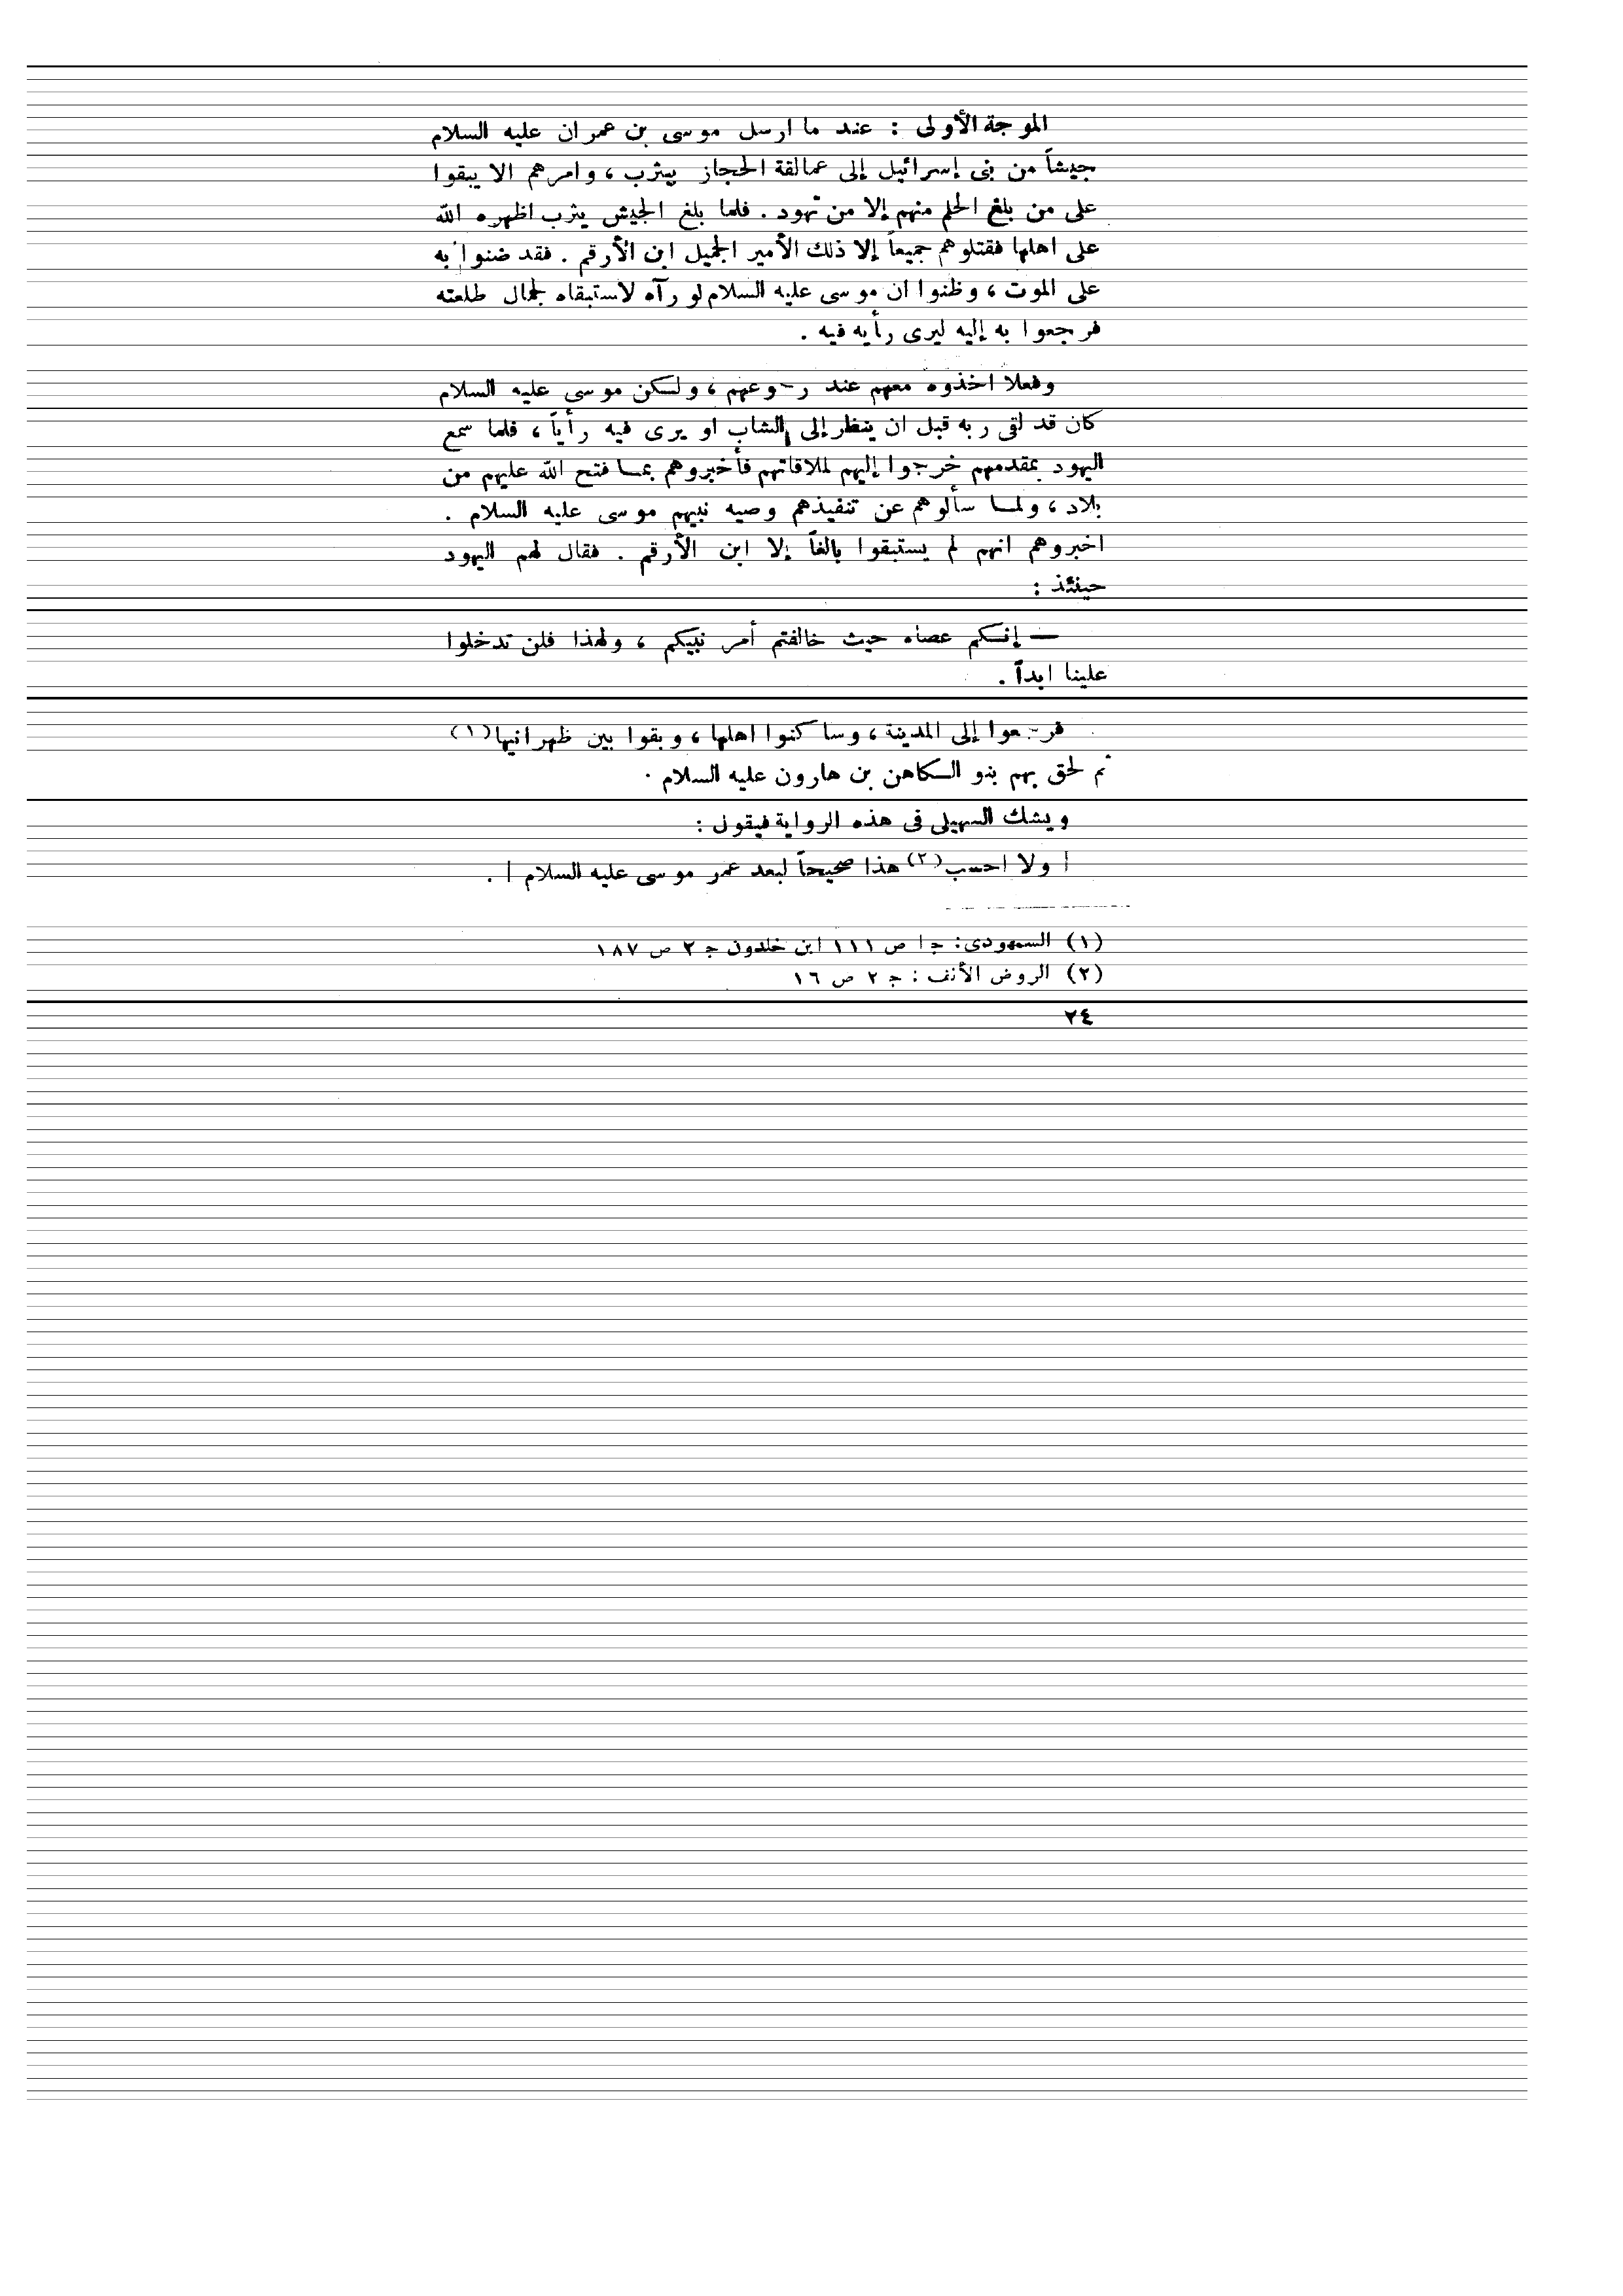 الموجة الأولى : عند ما ارسل موسى بن عمران عليه السلام
جيشاً من بنى إسرائيل إلى عمالقة الحجاز بيثرب ، وامرهم الا يبقوا
على من بلغ الحلم منهم إلا من تهود . فلما بلغ الجيش يثرب اظهره الله
على اهلها فقتلوهم جميعاً إلا ذلك الأمير الجميل ابن الأرقم . فقد ضنوا به
على الموت ، وظنوا ان موسى عليه السلام لو رآه لاستبقاه لجمال طلعته
فرجعوا به إليه ليرى رأيه فيه .
وفعلا اخذوه معهم عند رجوعهم ، ولكن موسى عليه السلام
كان قد لقى ربه قبل ان ينظر إلى الشاب او يرى فيه رأياً ، فلما سمع
اليهود بمقدمهم خرجوا إليهم لملاقاتهم فأخبروهم بمـا فتح الله عليهم من
بلاد ، ولمـا سألوهم عن تنفيذهم وصيه نبيهم موسى عليه السلام .
اخبروهم انهم لم يستبقوا بالغاً إلا ابن الأرقم . فقال لهم اليهود
حينئذ :
— إنكم عصاه حيث خالفتم أمر نبيكم ، ولهذا فلن تدخلوا
علينا ابداً .
فرجعوا إلى المدينة ، وساكنوا اهلها ، وبقوا بين ظهرانيها (١)
ثم لحق بهم بنو الكاهن بن هارون عليه السلام .
ويشك السهيلى فى هذه الرواية فيقول :
| ولا احسب (٢) هذا صحيحاً لبعد عمر موسى عليه السلام | .
(١) السمهودى : جـ ١ ص ١١١ ابن خلدون جـ ٢ ص ١٨٧
(٢) الروض الأنف : جـ ٢ ص ١٦
٢٤